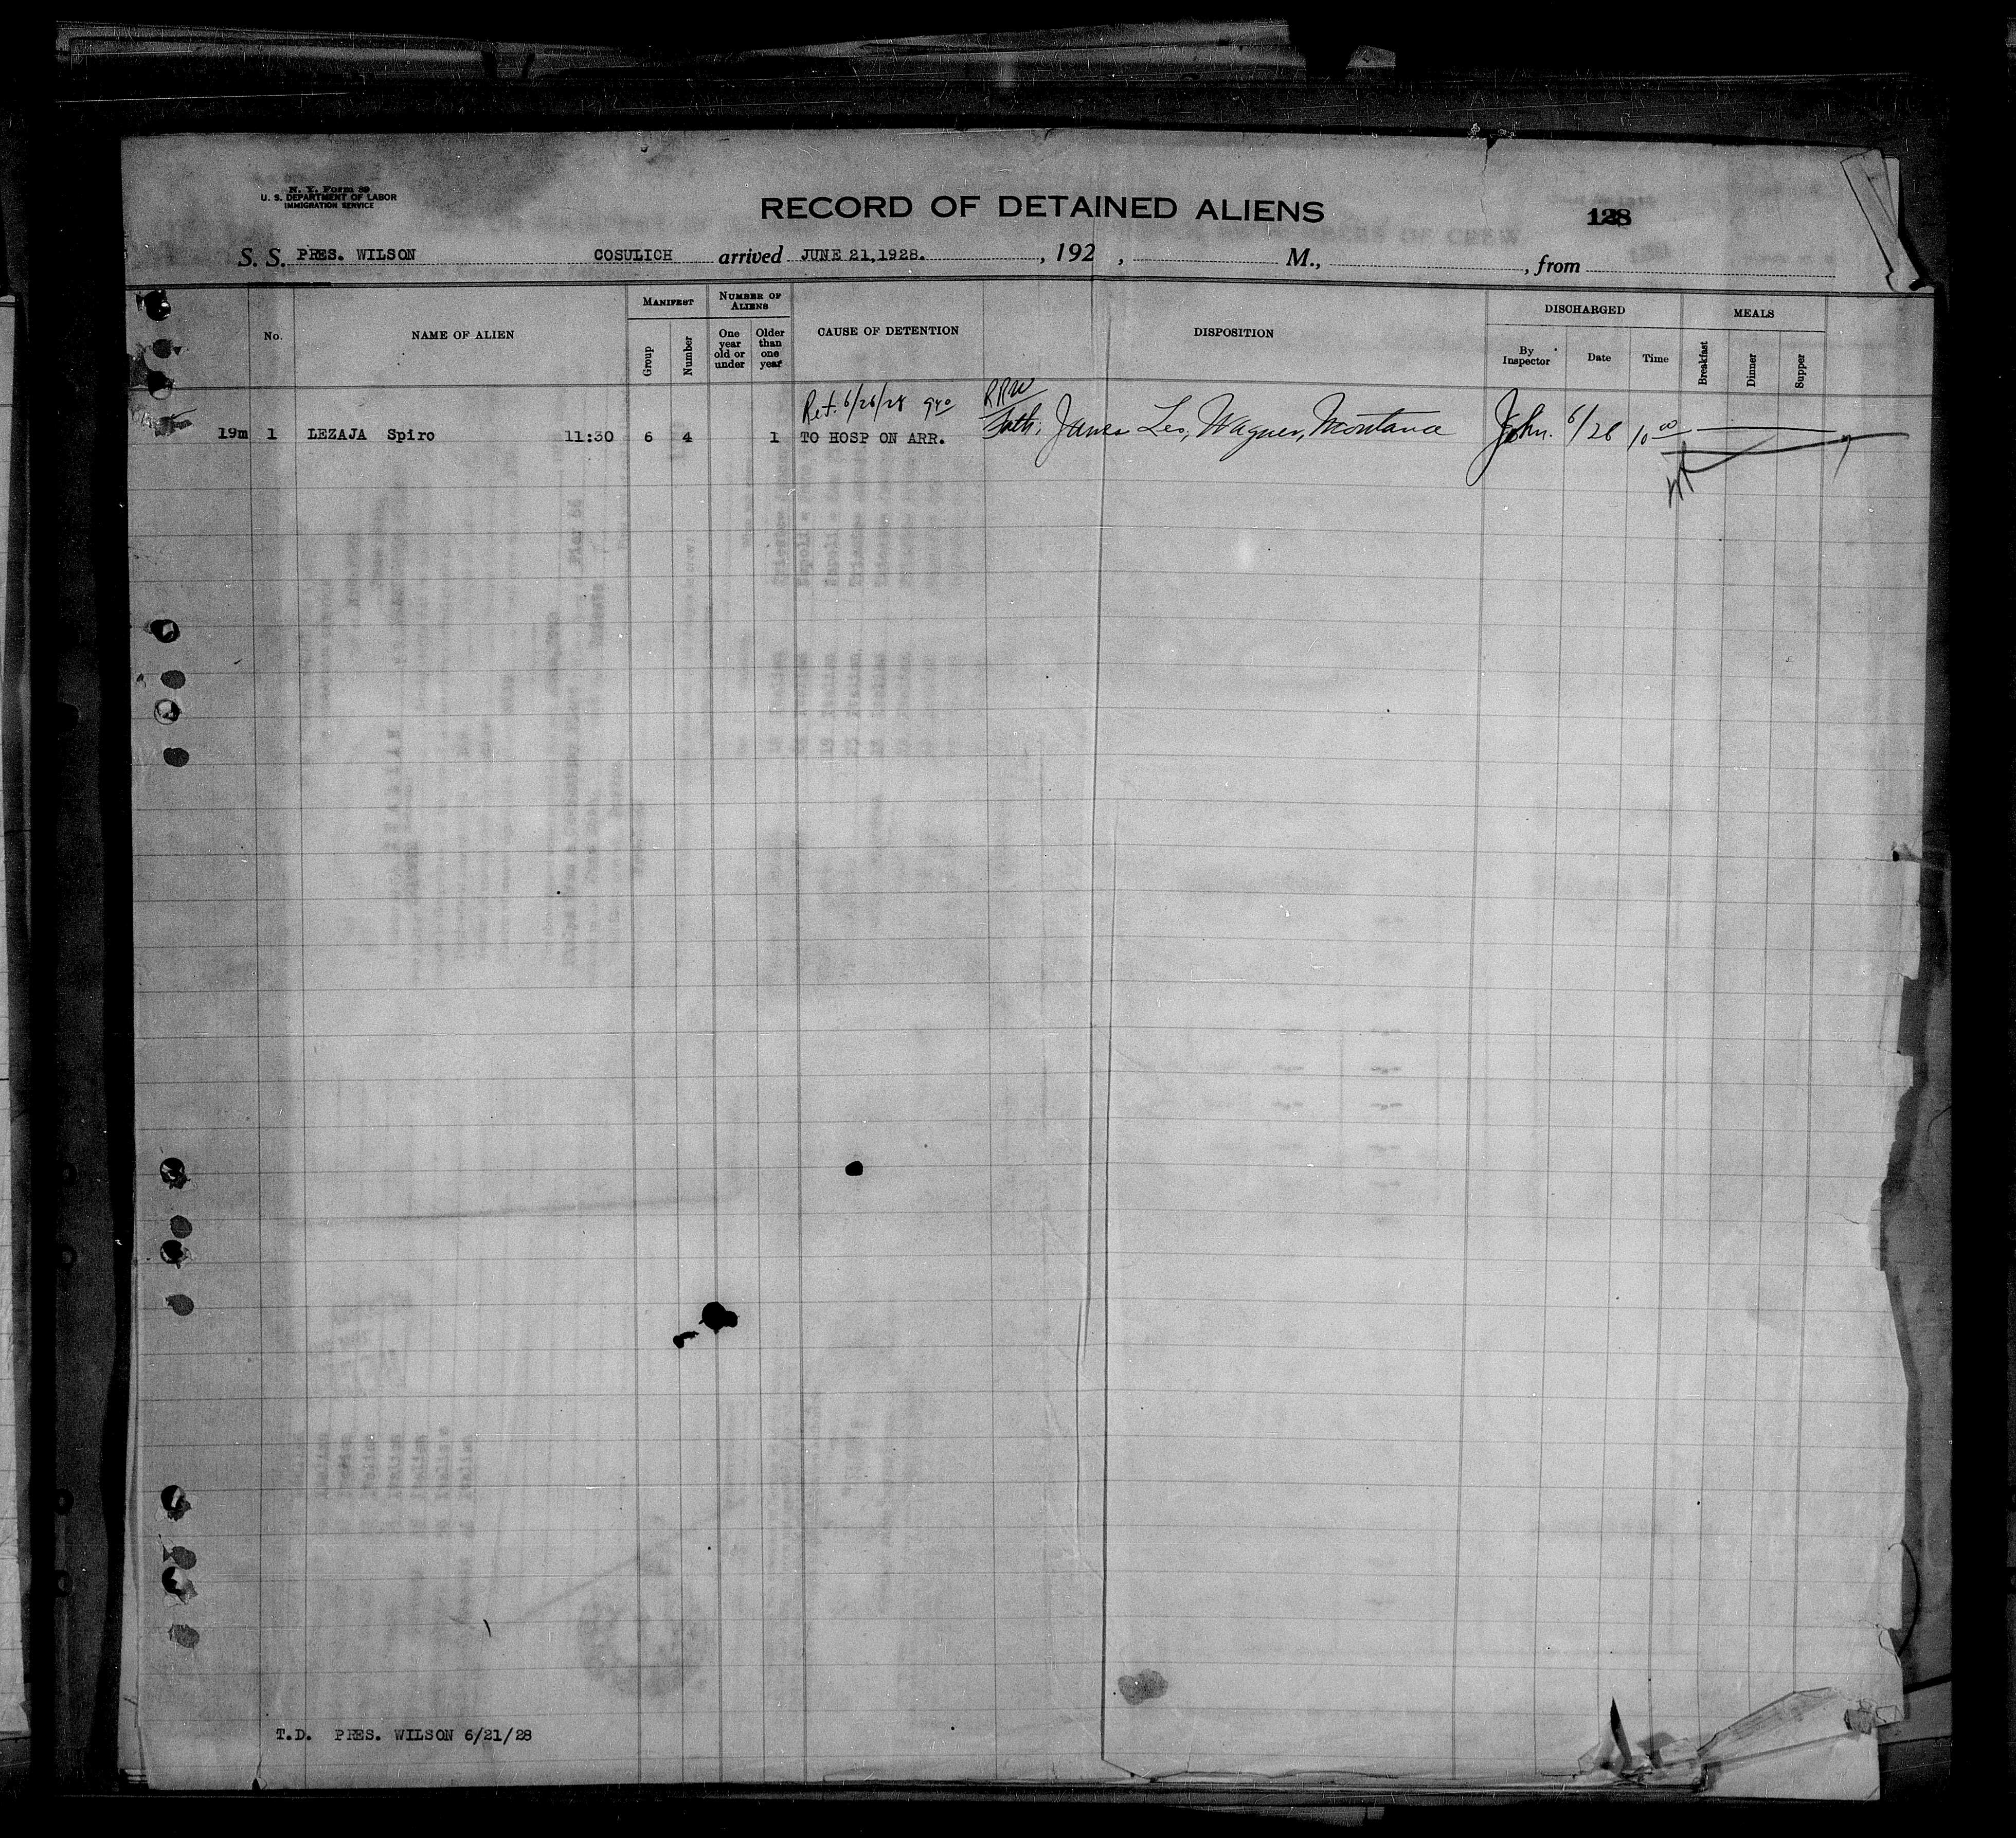 N. Y. Form 89
U. S. DEPARTMENT OF LABOR
IMMIGRATION SERVICE
RECORD OF DETAINED ALIENS
128
S. S. PRES. WILSON COSULICH arrived JUNE 21,1928. , 192 , M., , from
No. NAME OF ALIEN MANIFEST Group Number NUMBER OF ALIENS One year old or under Older than one year CAUSE OF DETENTION DISPOSITION DISCHARGED By Inspector Date Time MEALS Breakfast Dinner Supper
Ret. 6/26/28 9 40 RRW
19m 1 LEZAJA Spiro 11:30 6 4 1 TO HOSP ON ARR. Fath, James Les, Wagner, Montana John. 6/26 10 00
T.D. PRES. WILSON 6/21/28